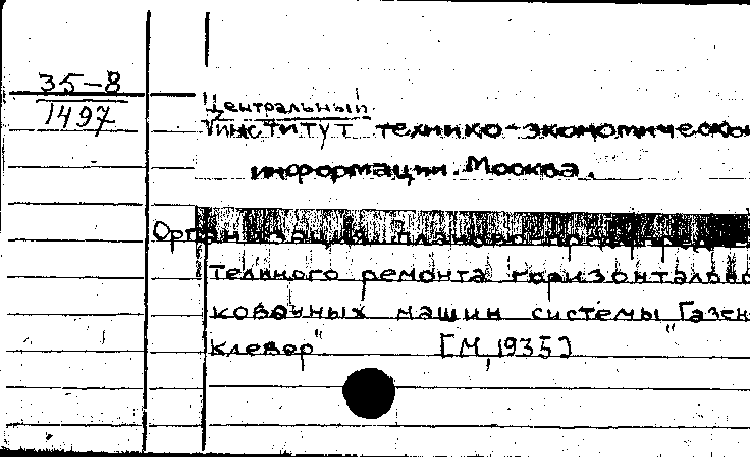 35-8
1497
Центральный
институт технико-экономической
информации. Москва.
Организация планово-предупреди-
тельного ремонта горизонтально-
ковочных машин системы „Газен-
клевер" [М, 1935]